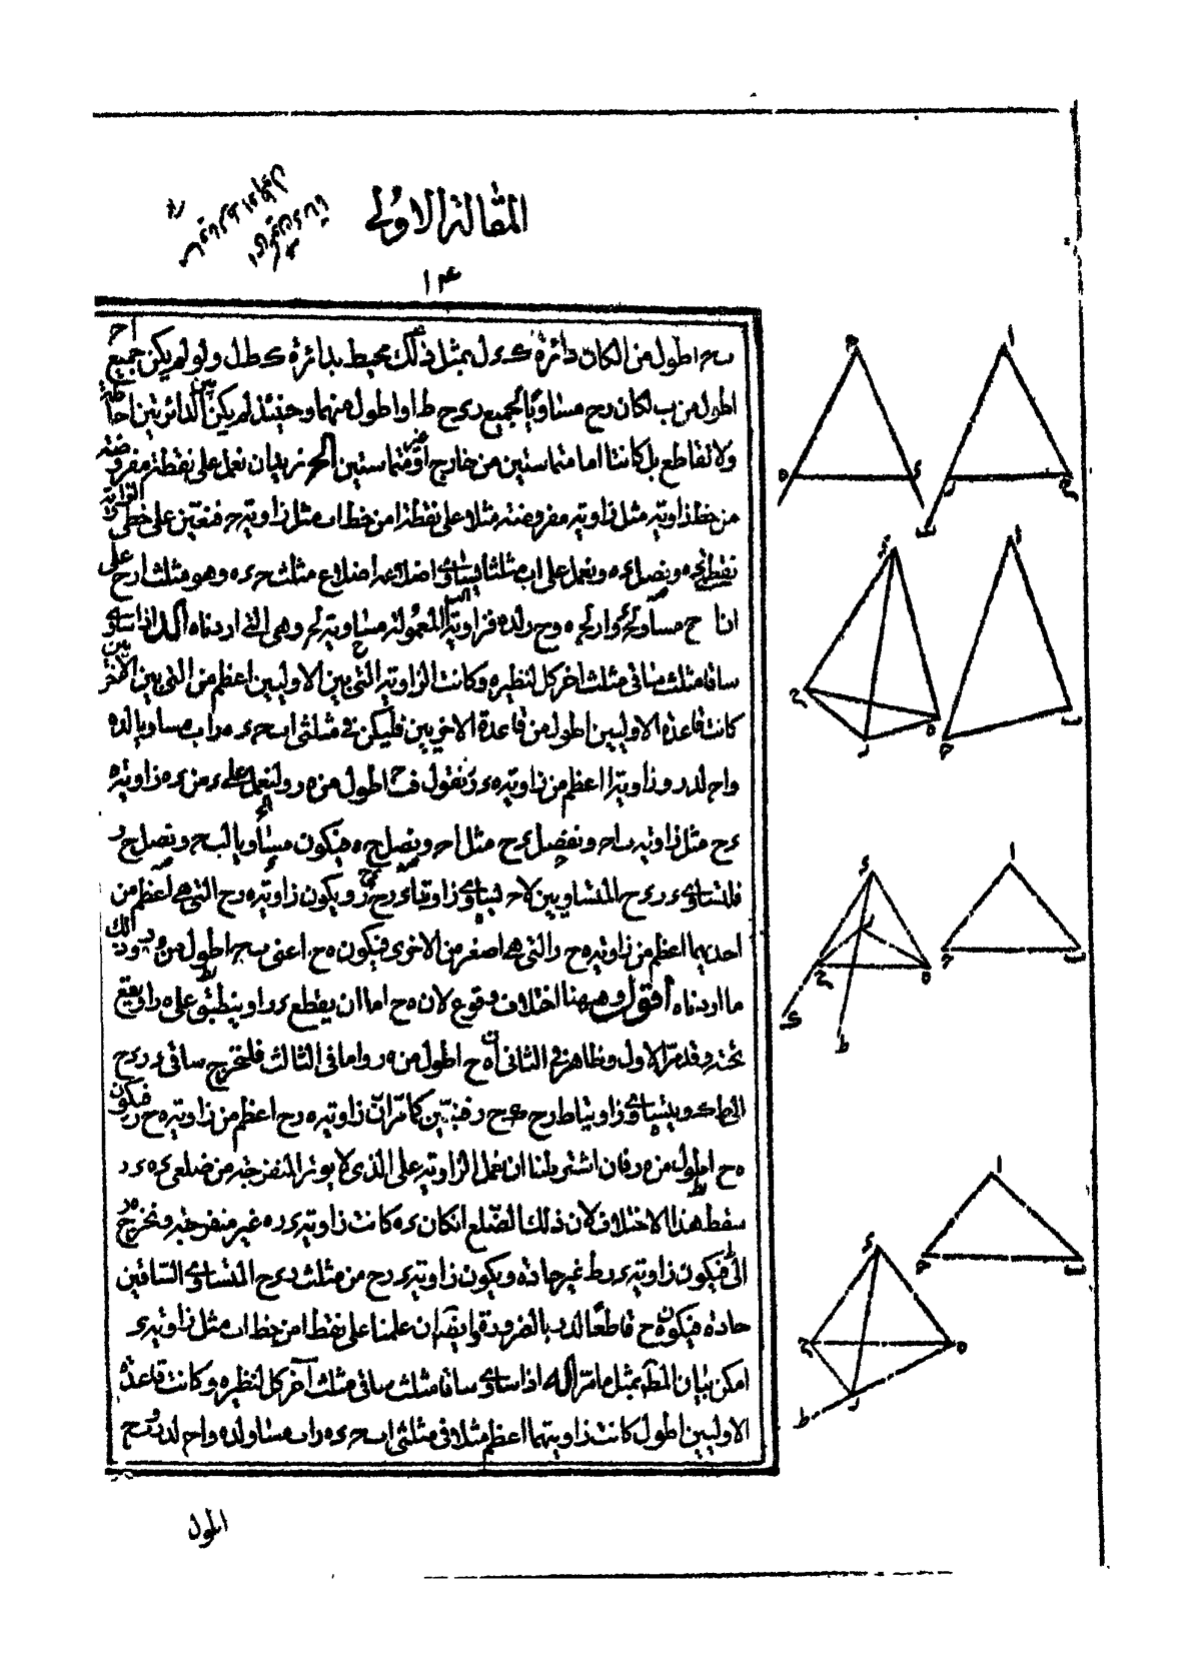 المقالة الاولى
١٤
ب ح اطول من ا لكان دائرة ك ل بمثل ذلك محيط بدائرة ك ط ل ولو لم يكن جميع ا ح
اطول من ب لكان ر ح مساويا لجميع ح ط او اطول منهما وحينئذ لم يكن بين الدائرتين احاطة
ولا تقاطع بل كانتا اما متماستين من خارج او غير متماستين الحر نريد ان نعمل على نقطة مفروضة
من خط زاوية مثل زاوية مفروضة مثلا على نقطة ا من خط ا ب مثل زاوية ح فنعين على خطى الزاوية
نقطتى ء ه ونصل ء ه ونعمل على ا ب مثلثا يساوى اضلاعه اضلاع مثلث ح ء ه وهو مثلث ا ر ح على
ان ا ح مساو ل ح ء و ا ر ل ح ه و ح ر ل ء ه فزاوية ا المعمولة مساوية ل ح وهى التى اردناه اذا ساوى
ساقا مثلث ساقى مثلث اخر كل لنظيره وكانت الزاوية التى بين الاوليين اعظم من التى بين الاخريين
كانت قاعدة الاوليين اطول من قاعدة الاخريين فليكن فى مثلثى ا ب ح ء ه ر ا ب مساويا ل ء ه
و ا ح ل ء ر وزاوية ا اعظم من زاوية ه ء ر نقول ف ب ح اطول من ه ر ولنعمل على ء من ء ه زاوية
ه ء ح مثل زاوية ب ا ح ونفصل ء ح مثل ا ح ونصل ح ه فيكون مساويا ل ب ح ونصل ح ر
فلتساوى ء ر ء ح المتساويين ل ا ح يتساوى زاويتا ء ر ح ء ح ر ويكون زاوية ه ر ح التى هى اعظم من
احديهما اعظم من زاوية ه ح ر التى هى اصغر من الاخرى فيكون ه ح اعنى ب ح اطول من ه ر وذلك
ما اردناه أقول وههنا اختلاف وقوع لان ه ح اما ان يقطع ء ر او ينطبق على ه ر او يقع
تحته وقد مر الاول وظاهر فى الثانى ان ه ح اطول من ه ر واما فى الثالث فلنخرج ساقى ء ر ء ح
الى ط ك ويتساوى زاويتا ط ر ح ك ح ر فتبين كما مر ان زاوية ه ر ح اعظم من زاوية ه ح ر فيكون
ه ح اطول من ه ر فان اشترطنا ان نعمل الزاوية على الذى لا يوتر المنفرجة من ضلعى ء ه ء ر
سقط هذا الاختلاف لان ذلك الضلع ان كان ء ه كانت زاوية ء ر ه غير منفرجة ونخرج ه ر
الى ط فيكون زاوية ء ر ط غير حادة ويكون زاوية ء ر ح من مثلث ء ر ح المتساوى الساقين
حادة فيكون ه ح قاطعا ل ء ر بالضرورة وايضا ان عملنا على نقطة ا من خط ا ب مثل زاوية ء
امكن بيان المط بمثل ما مر اذا ساوى ساقا مثلث ساقى مثلث آخر كل لنظيره وكانت قاعدة
الاوليين اطول كانت زاويتهما اعظم مثلا فى مثلثى ا ب ح ء ه ر ا ب مساو ل ء ه و ا ح ل ء ر و ب ح
اطول